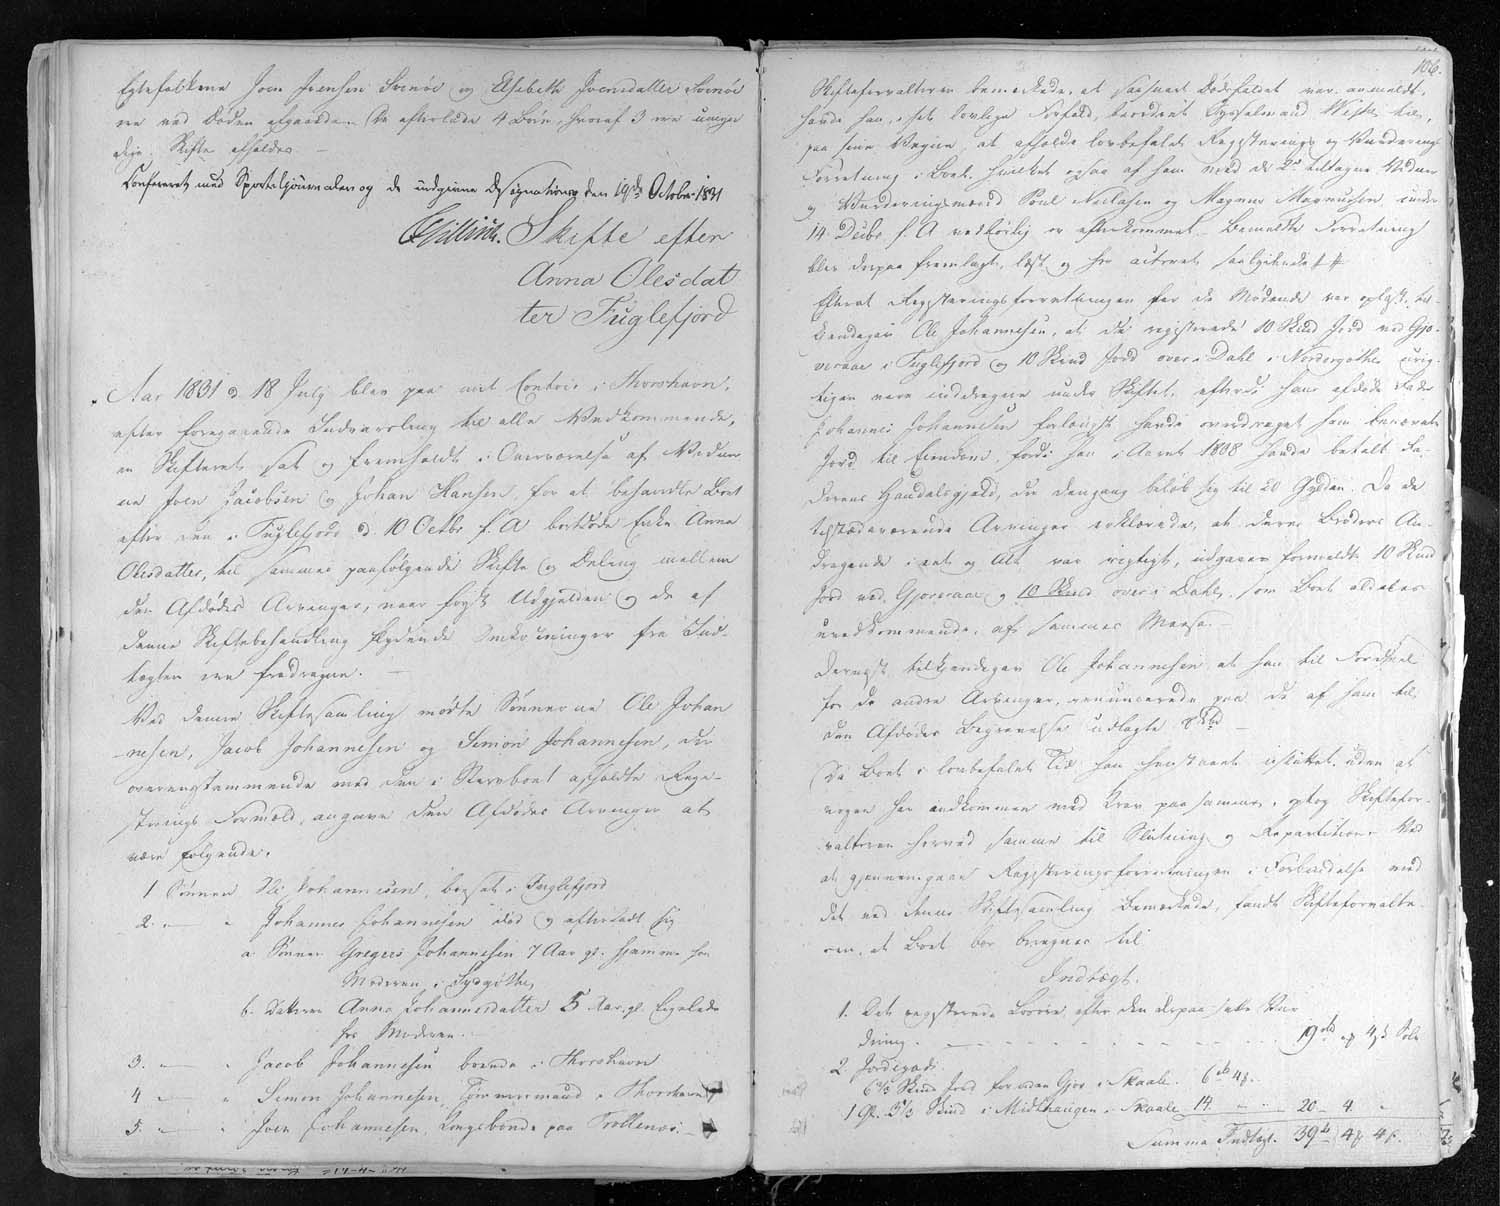 Egtefolkene Joen Joensen Svinöe og Elsebeth Joensdatter Svinöe
ere ved Döden afgaaede. De efterlade 4 Börn, hvoraf 3 ere umyn
dige. Skifte afholdes.
Confereret med Sportelsjournalen og de indgivne Designationer den 19de October 1831
Tillisch.
Skifte efter
Anna Olesdat
ter Fuglefjord
Aar 1831 d. 18 July blev paa mit Contoir i Thorshavn,
efter foregaaende Indvarsling til alle Vedkommende,
en Skifteret sat og fremholdt i Overværelse af Vidner
ne Joen Jacobsen og Johan Hansen, for at behandle Boet
efter den i Fuglefjord d. 10 Octbr f. A. bortdöde Enke Anna
Olesdatter, til sammes paafölgende Skifte og Deling mellem
den Afdödes Arvinger, naar först Udgjelden og de af
denne Skiftebehandling flydende Omkostninger fra Ind-
tægten ere fradragne.
Ved denne Skiftesamling mödte Sönnerne Ole Johan
nesen, Jacob Johannesen og Simon Johannesen, der
overensstemmende med den i Stervboet afholdte Regi-
strerings Forretning, angave den Afdödes Arvinger at
være fölgende.
1 Sönnen Ole Johannesen, bosat i Fuglefjord
2. — " Johannes Johannesen död og efterladt sig
a Sönnen Gregers Johannesen 7 Aar gl. hjemme hos
Moderen i Sydgöthe,
b. Datteren Anna Johannesdatter 5 Aar gl. ligeledes
hos Moderen.
3. — " Jacob Johannesen boende i Thorshavn
4 — " Simon Johannesen, Tömmermand i Thorshavn
5. — " Joen Johannesen, Kongsbonde paa Trollenes.
106.
Skifteforvalteren bemærkede, at saasnart Dödsfaldet var anmeldt,
havde han, i sit lovlige Forfald, beordret Sysselmand til,
paa sine Vegne, at afholde lovbefalet Registrerings og Vurderings
Forretning i Boet, hvilket ogsaa af ham med de 2de tiltagne Vidner
og Vurderingsmænd Poul Nielsen og Magnus Magnussen, under
14 Decbr f. A. vedbörlig er efterkommet. Bemeldte Forretning
blev derpaa fremlagt, læst og her acteret saalydende ##
Efterat Registreringsforretningen for de Mödende var oplæst, til-
kjendegav Ole Johannesen, at de registrerede 10 Skind Jord ved Gjo-
veraae i Fuglefjord og 10 Skind Jord over i Dahl i Nordregöthe urig-
tigen vare inddragne under Skiftet, efterdi hans afdöde Fader
Johannes Johannesen forlængst havde overdraget ham benævnte
Jord til Eiendom, fordi han i Aaret 1808 havde betalt Fa-
derens Handelsgjæld, der dengang belöb sig til 20 Gylden. Da de
tilstædeværende Arvinger erklærede, at deres Broders An-
dragende i eet og Alt var rigtigt, udgaaer formeldte 10 Skind
Jord ved Gjoveraae og 10 Skind over i Dahl, som Boet aldeles
uvedkommende, af sammes Masse.
Dernæst tilkjendegav Ole Johannesen, at han til Fordeel
for de andre Arvinger, renuncerede paa de af ham til
den Afdödes Begravelse udlagte
Da Boet i lovbefalet Tid har henstaaet uskiftet, uden at
nogen har indkommen med Krav paa samme, optog Skiftefor-
valteren herved samme til Slutning og Repartition. Ved
at gjennemgaae Registreringsforretningen i Forbindelse med
det ved denne Skiftesamling Bemærkede, fandt Skifteforvalte-
ren, at Boet bör beregnes til
Indtægt.
1. Det registrerede Lösöre efter den derpaa satte Vur
dering . — — — 19 4 Sölv
2 Jordegods:
6 1/3 Skind Jord for uden Gjov i Skaale. 6 4 ß.
1 Gl. 3 1/3 Skind i Midthaugen i Skaale 14. — — 20 4. "
Summa Indtægt. 39 4 4 ß.